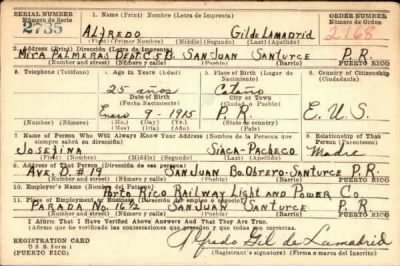 SERIAL NUMBER 1. Name (Print) Nombre (Letra de Imprenta) ORDER NUMBER
Número de Serie Número de Orden
2735 ALFREDO Gil de Lamadrid 2168
(First) (Primer Nombre) (Middle) (Segundo) (Last) (Apellido)
2. Address (Print) Dirección (Letra de Imprenta)
MIRA PALMERAS DEPT. C 5 B. SAN JUAN SANTURCE P.R.
(Number and street) (Número y calle) (Town) (Pueblo) (Barrio) (Municipality) (Municipio) PUERTO RICO
4. Telephone (Teléfono) 5. Age in Years (Edad) 5. Place of Birth (Lugar de Nacimiento) 6. Country of Citizenship (Ciudadanía)
25 años Cataño
Date of Birth City or Town
(Fecha Nacimiento) (Ciudad o Pueblo)
Enero 9 - 1915 P.R. E.U.S.
(Number) (Número) (Mo.) (Mes) (Day) (Día) (Yr.) (Año)
7. Name of Person Who Will Always Know Your Address (Nombre de la Persona que siempre sabrá su dirección) 8. Relationship of That Person (Parentesco)
JOSEFINA SIACA-PACHECO Madre
(First) (Nombre) (Middle) (Segundo) (Last) (Apellido)
9. Address of That Person (Dirección de esa persona)
AVE. D. #19 SAN JUAN Bo. OBRERO-SANTURCE P.R.
(Number and street) (Número y calle) (Town) (Pueblo) (Barrio) (Municipality) (Municipio) PUERTO RICO
10. Employer's Name (Nombre del Patrono)
Porto Rico Railway Light and Power Co.
11. Place of Employment or Business (Dirección del empleo o negocio)
PARADA No. 16½ SAN JUAN SANTURCE P.R.
(Number and street) (Número y calle) (Town) (Pueblo) (Barrio) (Municipality) (Municipio) PUERTO RICO
I Affirm That I Have Verified Above Answers And That They Are True.
(Afirmo que he verificado las contestaciones que preceden y que todas son ciertas)
REGISTRATION CARD
D S S Form 1
(PUERTO RICO)
Alfredo Gil de Lamadrid
(Registrant's signature) (Firma o marca del Inscrito)